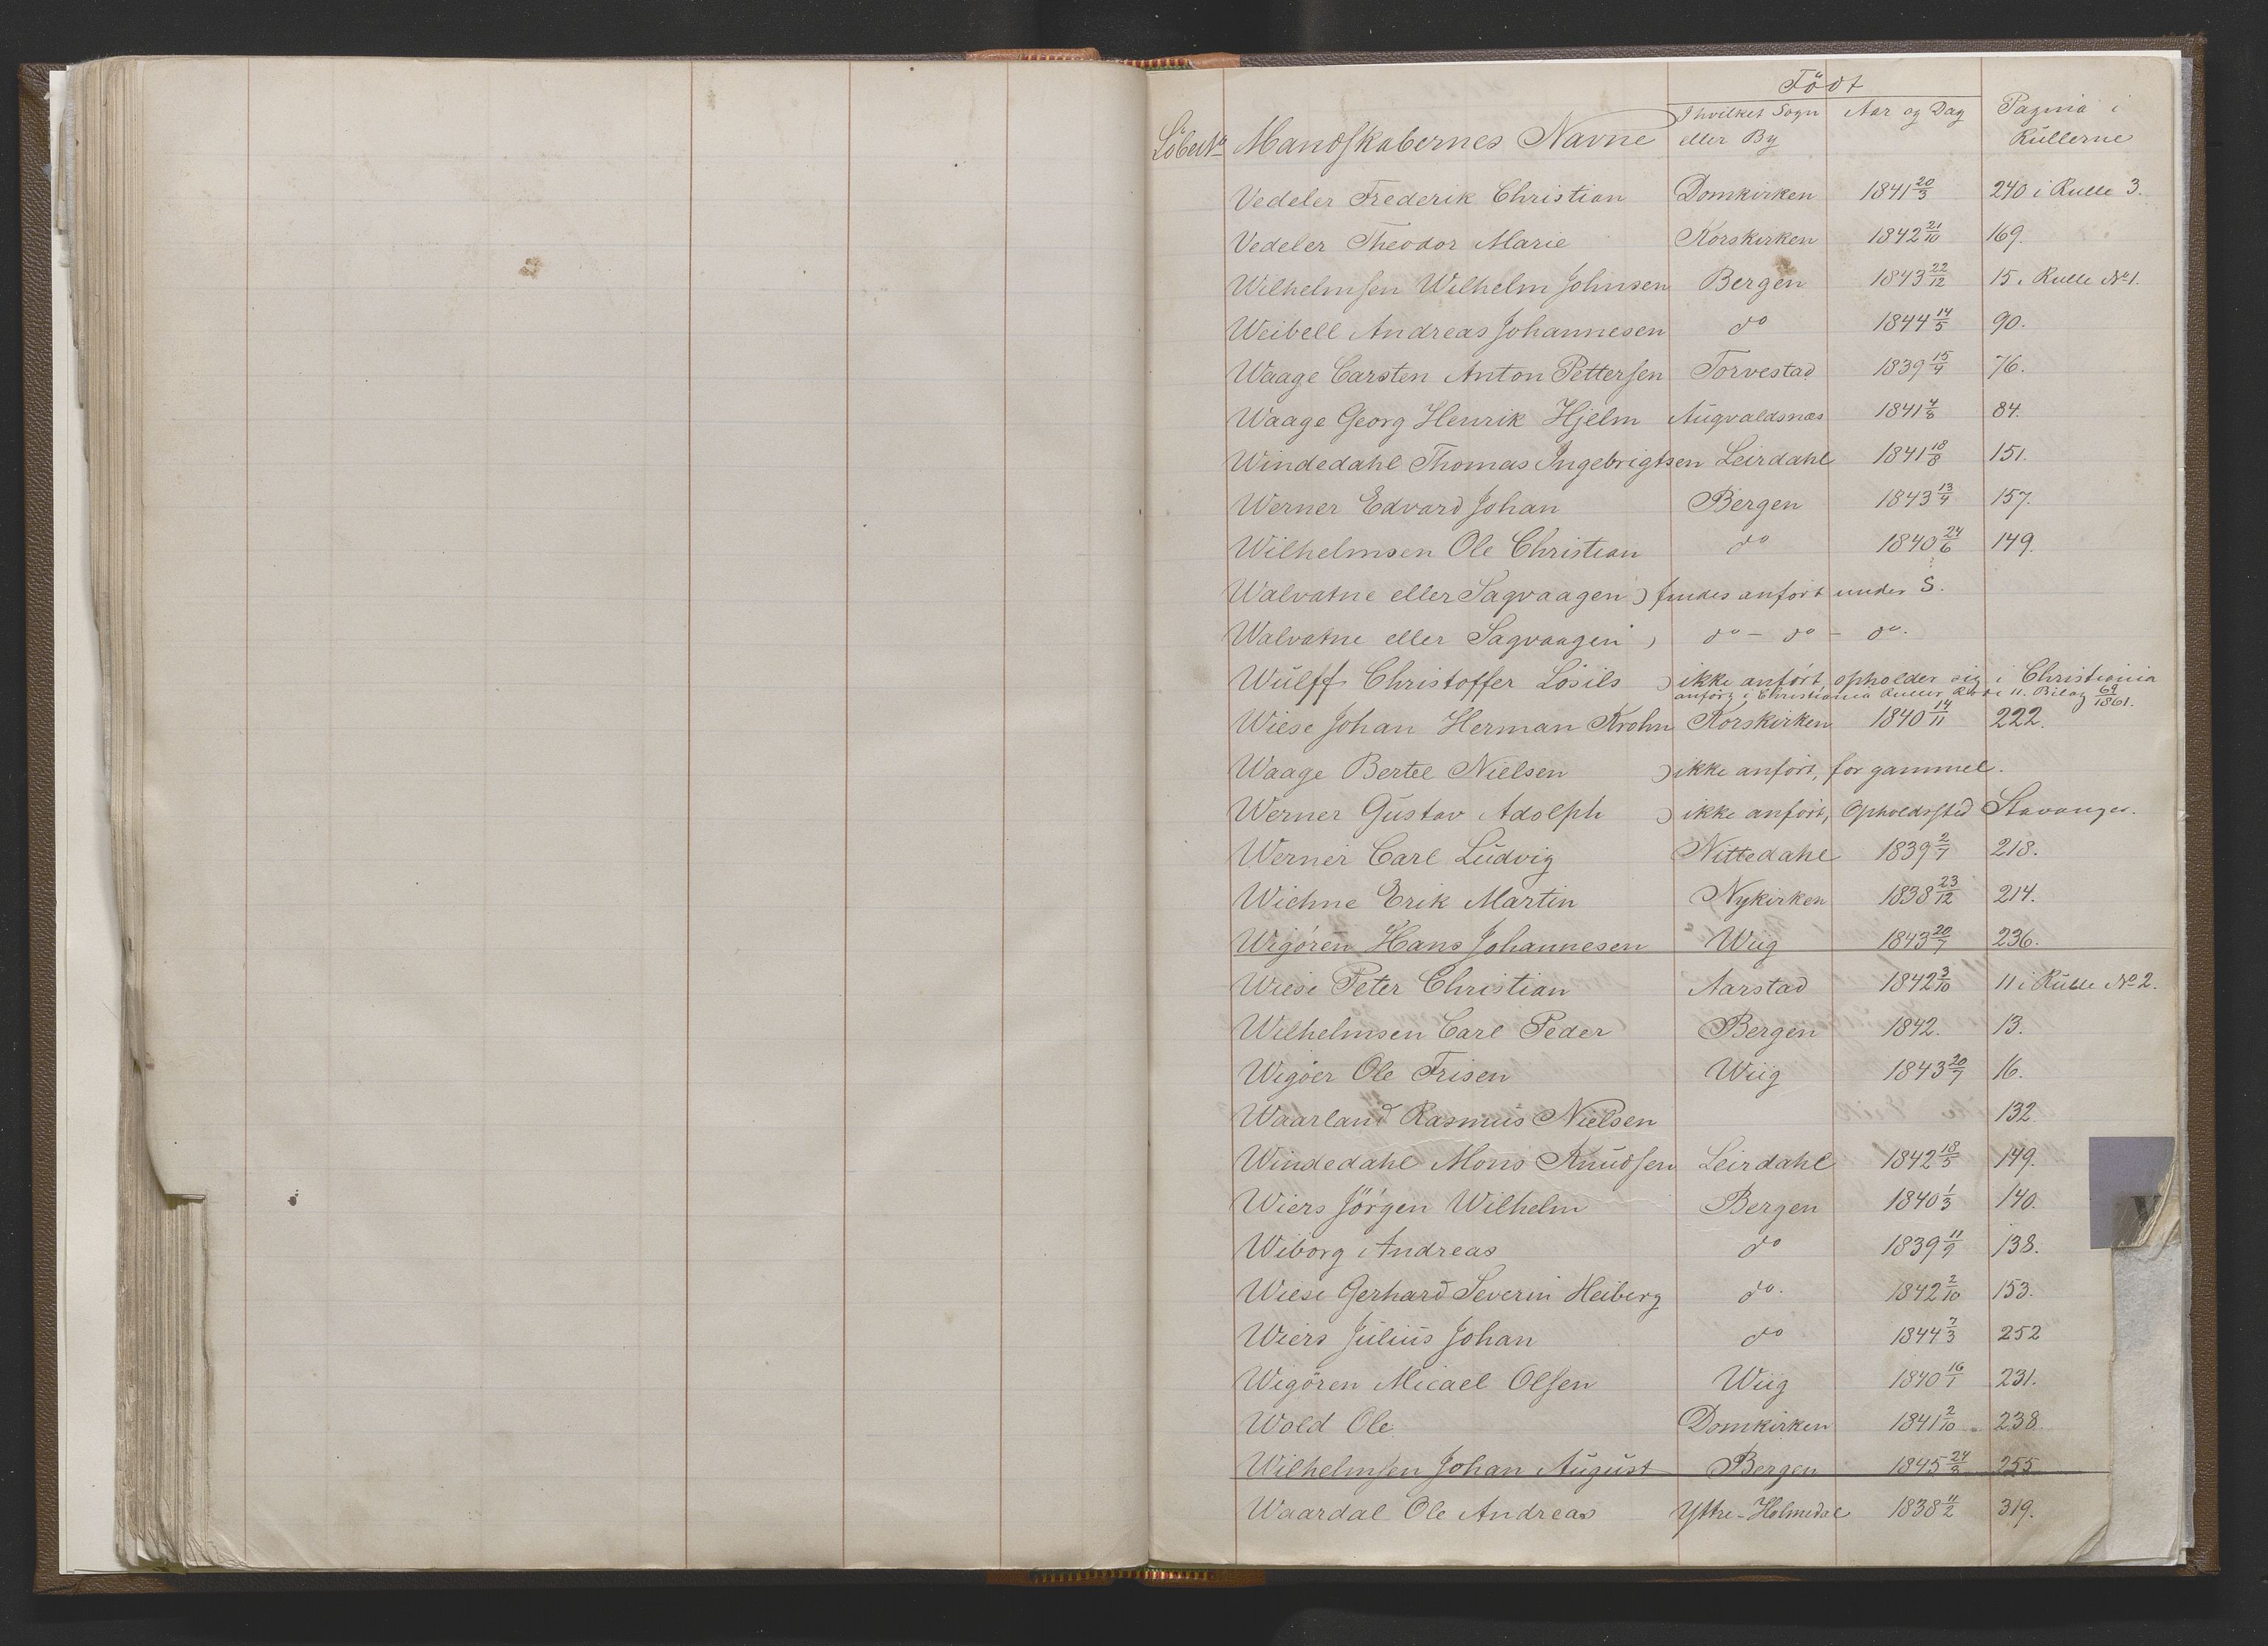 Födt
Löbe No Mandskabernes Navne I hvilket Sogn eller By Aar og Dag Pagina i Rullerne
Vedeler Frederik Christian Domkirken 1841 20/3 240 i Rulle 3.
Vedeler Theodor Marie Korskirken 1842 21/10 169.
Wilhelmsen Wilhelm Johnsen Bergen 1843 22/12 15. Rulle No 1.
Weibell Andreas Johannesen do 1844 14/5 90.
Waage Carsten Anton Pettersen Torvestad 1839 15/4 76.
Waage Georg Henrik Hjelm Augvaldsnæs 1841 4/8 84.
Windedahl Thomas Ingebrigtsen Leirdahl 1841 18/8 151.
Werner Edvard Johan Bergen 1843 13/4 157.
Wilhelmsen Ole Christian do 1840 24/6 149.
Walvatne eller Sagvaagen ) findes anført under S.
Walvatne eller Sagvaagen ) do - do - do.
Wulff Christoffer Losils ) ikke anført, opholder sig i Christiania
anförg i Christiania Ruller 11. Bilag 69/1861.
Wiese Johan Herman Krohn Korskirken 1840 14/11 222.
Waage Bertel Nielsen ) ikke anført, for gammel.
Werner Gustav Adolph ) ikke anført, Opholdssted Stavanger.
Werner Carl Ludvig Nittedahl 1839 2/7 218.
Wichne Erik Martin Nykirken 1838 23/12 214.
Wigören Hans Johannesen Wiig 1843 20/7 236.
Wiese Peter Christian Aarstad 1842 3/10 11 i Rulle No 2.
Wilhelmsen Carl Peder Bergen 1842. 13.
Wigöer Ole Frisen Wiig 1843 20/7 16.
Waarland Rasmus Nielsen 132.
Windedahl Mons Knudsen Leirdahl 1842 18/5 149.
Wiers Jörgen Wilhelm Bergen 1840 1/3 140.
Wiborg Andreas do 1839 11/9 138.
Wiese Gerhard Severin Heiberg do. 1842 2/10 153.
Wiers Julius Johan do 1844 7/3 252
Wigören Micael Olsen Wiig 1840 16/1 231.
Wold Ole Domkirken 1841 2/10 238
Wilhelmsen Johan August Bergen 1845 24/8 255
Waardal Ole Andreas Yttre-Holmedal 1838 11/2 319.